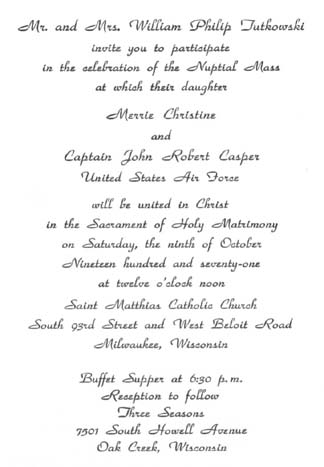 Mr. and Mrs. William Philip Tutkowski
invite you to participate
in the celebration of the Nuptial Mass
at which their daughter
Merrie Christine
and
Captain John Robert Casper
United States Air Force
will be united in Christ
in the Sacrament of Holy Matrimony
on Saturday, the ninth of October
Nineteen hundred and seventy-one
at twelve o'clock noon
Saint Matthias Catholic Church
South 93rd Street and West Beloit Road
Milwaukee, Wisconsin
Buffet Supper at 6:30 p.m.
Reception to follow
Three Seasons
7501 South Howell Avenue
Oak Creek, Wisconsin